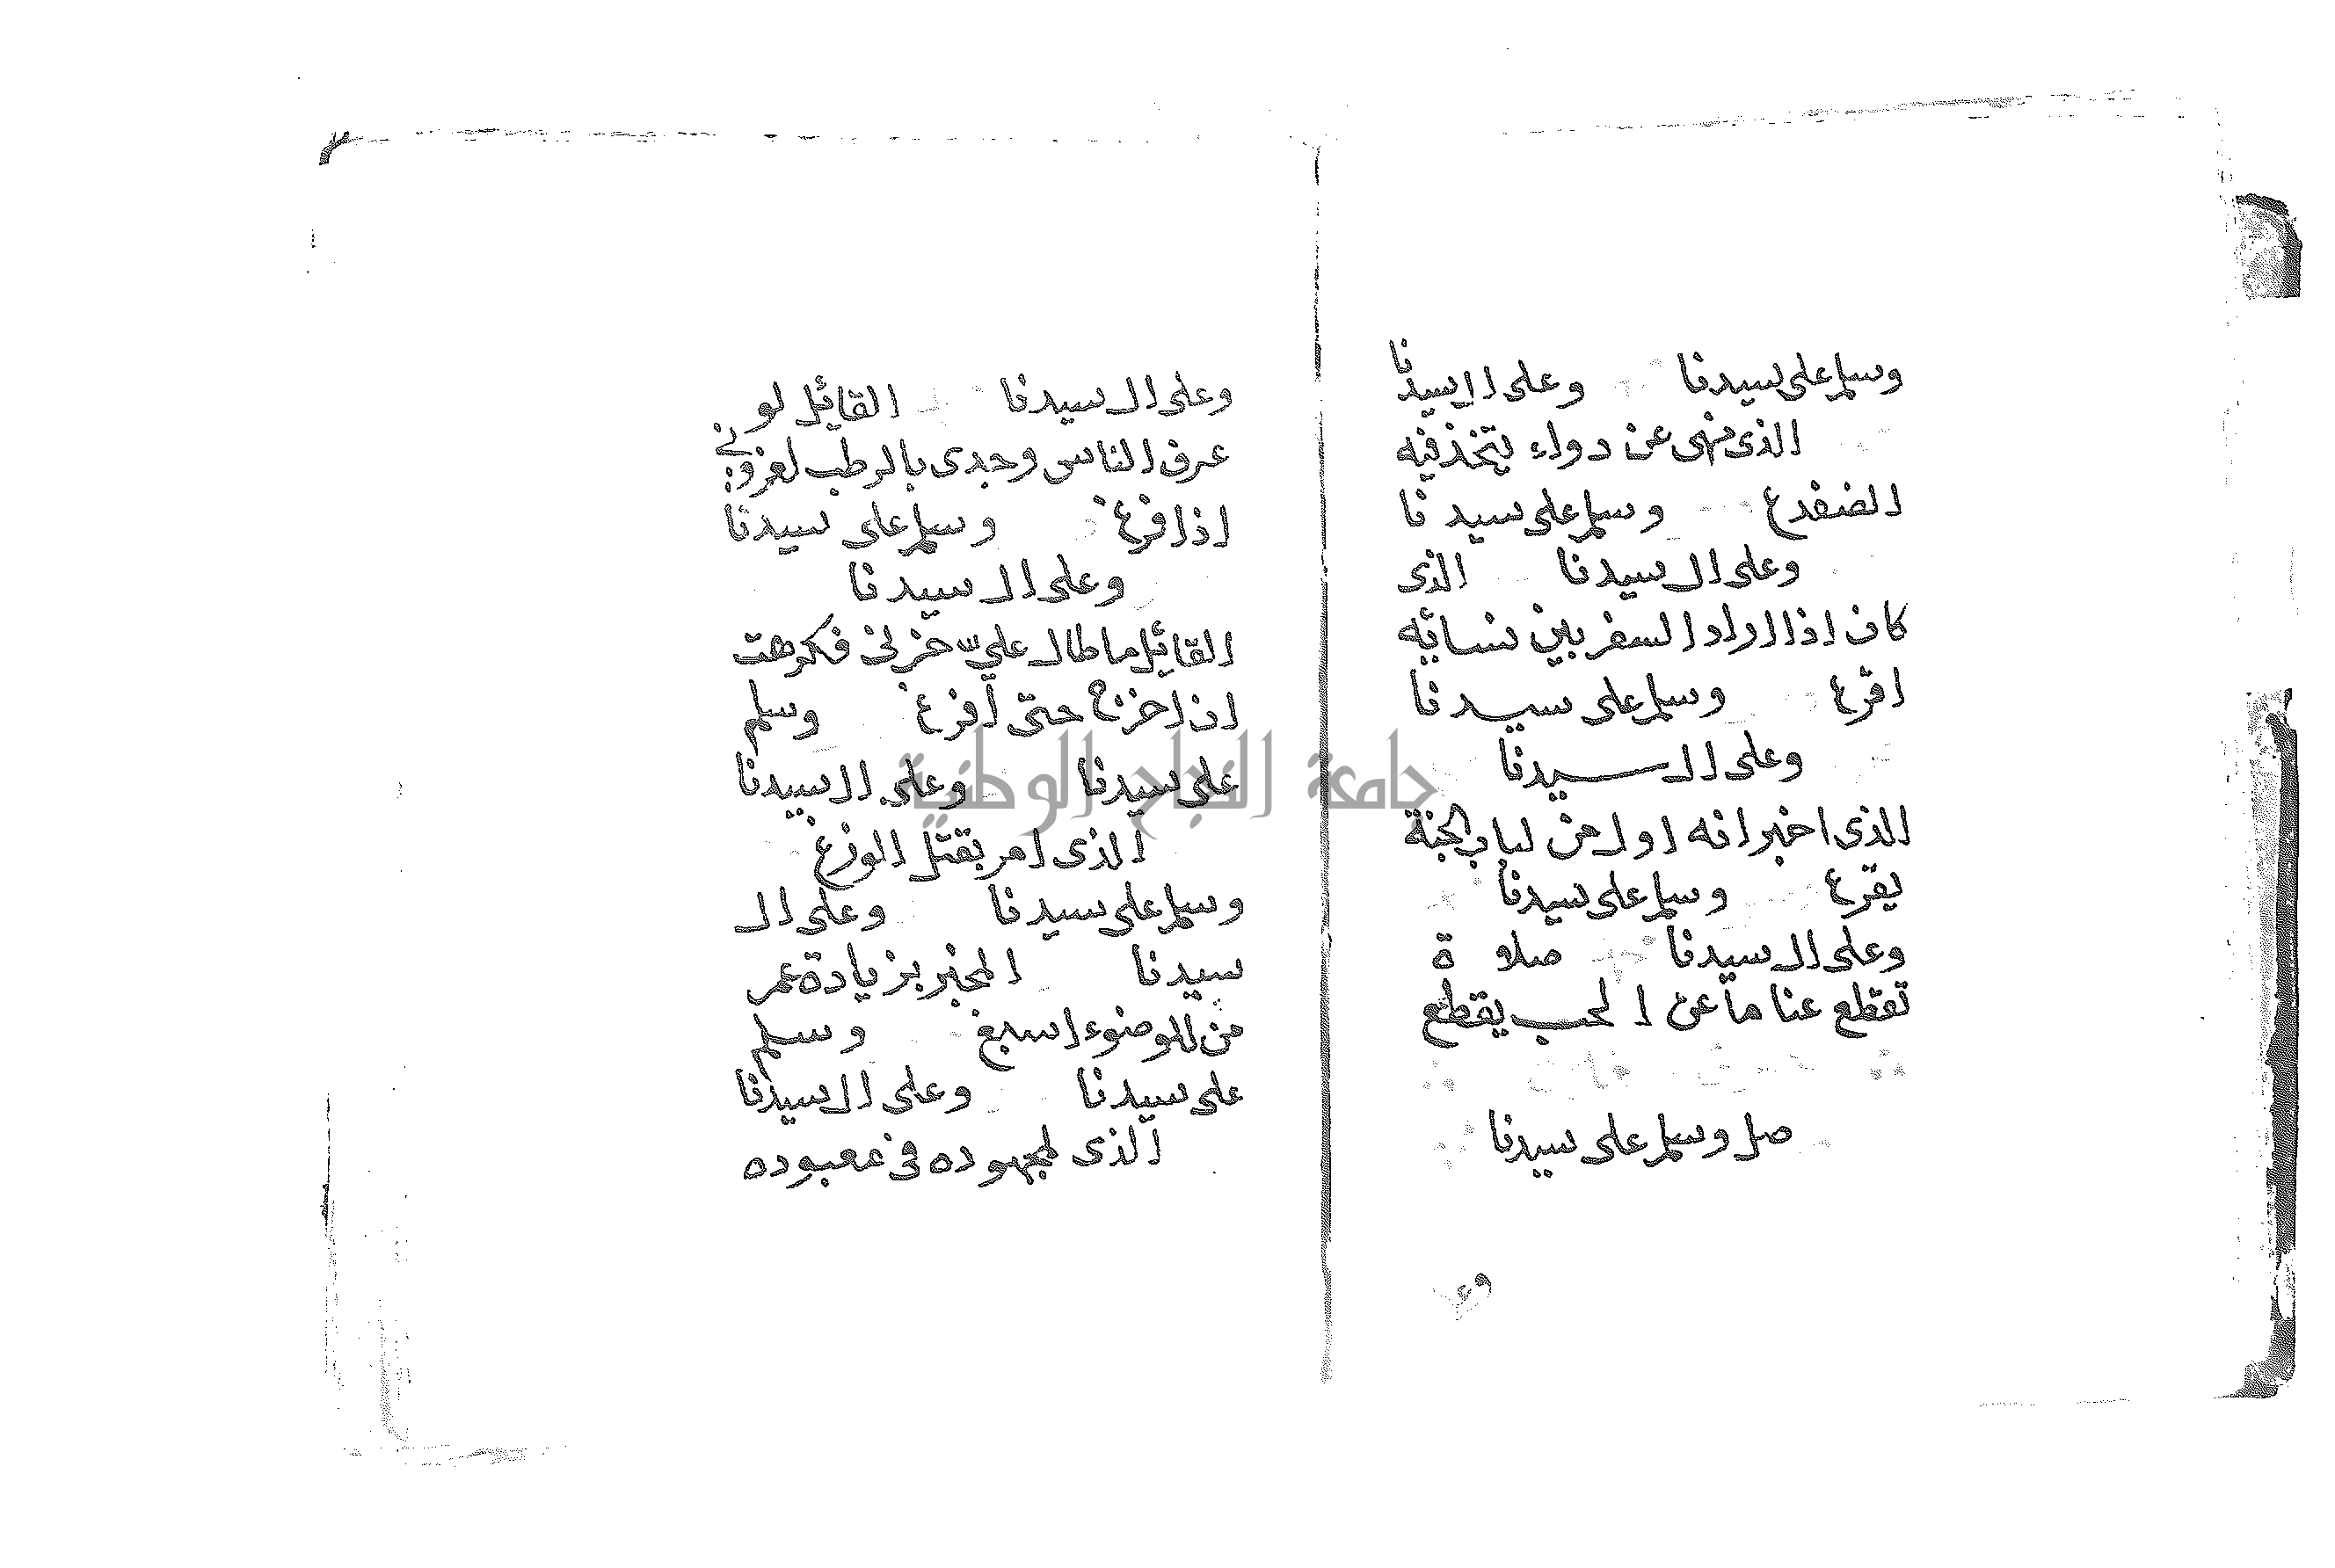 وسلم على سيدنا وعلى ال سيدنا
نا
الذى نهى عن دواء يتخذ فيه
الضفدع وسلم على سيدنا
وعلى ال سيدنا الذى
كان اذا اراد السفر بين نسائه
اقرع وسلم على سيدنا
وعلى ال سيدنا
الذى اخبر انه اول من لباب الجنة
يقرع وسلم على سيدنا
وعلى ال سيدنا صلاة
تقطع عنا ما عن الحب يقطع
صل وسلم على سيدنا
وعلى ال سيدنا القائل لو
عرف الناس وجدى بالرطب لعزونى
اذا فرغ وسلم على سيدنا
وعلى ال سيدنا
القائل ما طال علي حزنى فكرهت
ان اخرج حتى أفرغ وسلم
على سيدنا وعلى ال سيدنا
الذى امر بقتل الوزغ
وسلم على سيدنا وعلى ال
سيدنا المخبر بزيادة عمر
من للوضوء اسبغ وسلم
على سيدنا وعلى ال سيدنا
الذى لمجهوده فى معبوده
جامعة النجاح الوطنية